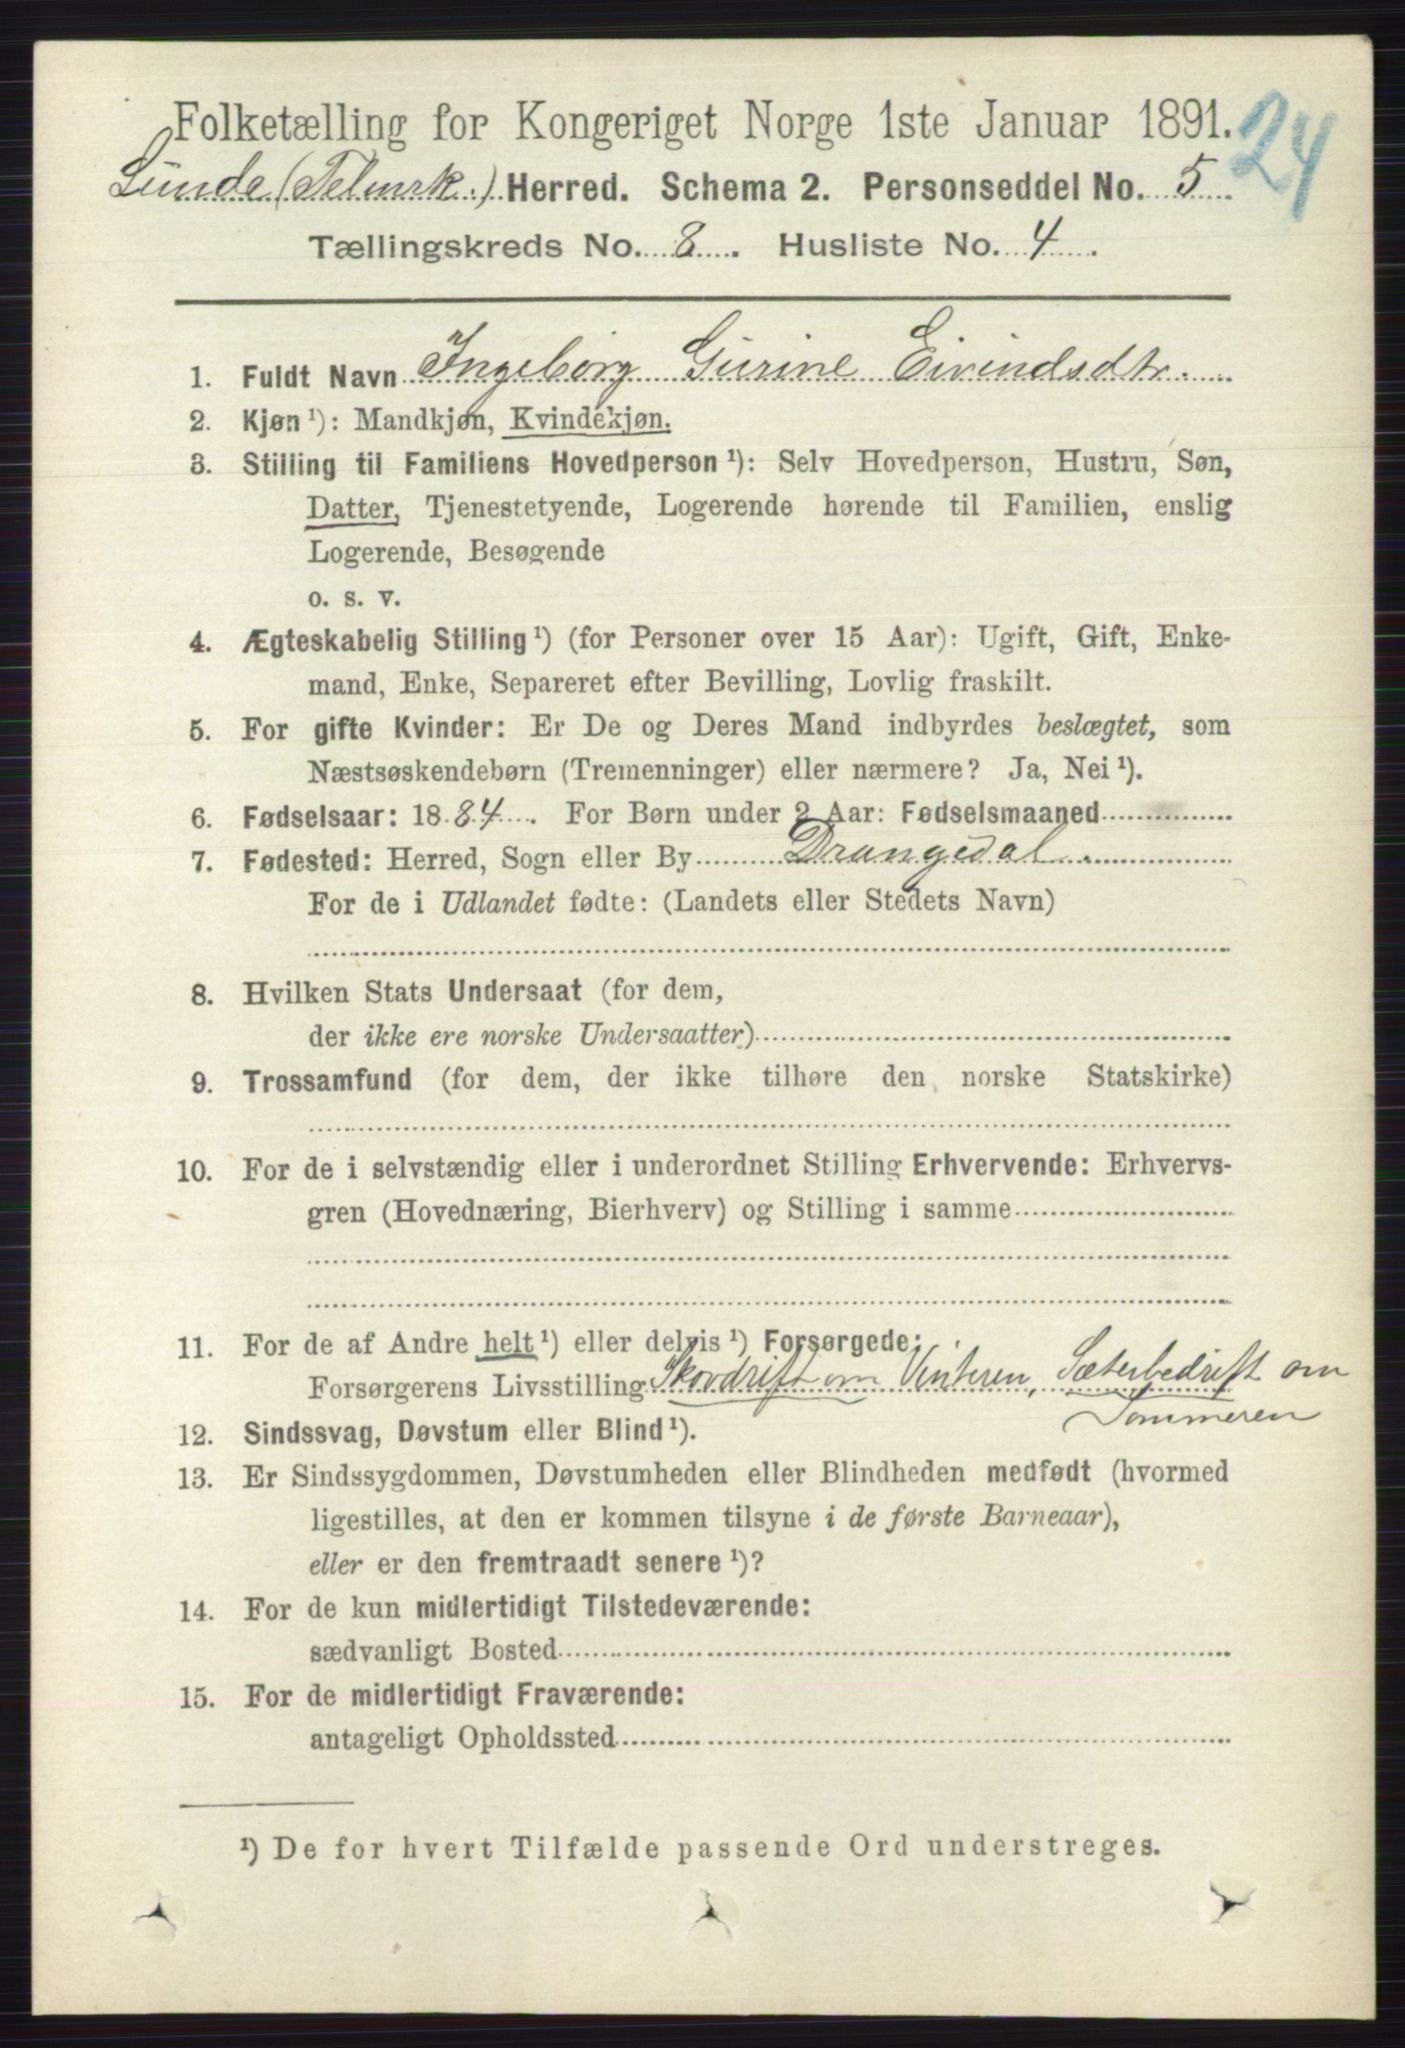 Folketælling for Kongeriget Norge 1ste Januar 1891.
24
Lunde (Telmrk.) Herred. Schema 2. Personseddel No. 5
Tællingskreds No. 8. Husliste No. 4.
1. Fuldt Navn Ingeborg Gurine Eivindsdtr.
2. Kjøn ¹): Mandkjøn, Kvindekjøn.
3. Stilling til Familiens Hovedperson ¹): Selv Hovedperson, Hustru, Søn,
Datter, Tjenestetyende, Logerende hørende til Familien, enslig
Logerende, Besøgende
o. s. v.
4. Ægteskabelig Stilling ¹) (for Personer over 15 Aar): Ugift, Gift, Enke-
mand, Enke, Separeret efter Bevilling, Lovlig fraskilt.
5. For gifte Kvinder: Er De og Deres Mand indbyrdes beslægtet, som
Næstsøskendebørn (Tremenninger) eller nærmere? Ja, Nei ¹).
6. Fødselsaar: 1884. For Børn under 2 Aar: Fødselsmaaned
7. Fødested: Herred, Sogn eller By Drangedal.
For de i Udlandet fødte: (Landets eller Stedets Navn)
8. Hvilken Stats Undersaat (for dem,
der ikke ere norske Undersaatter)
9. Trossamfund (for dem, der ikke tilhøre den norske Statskirke)
10. For de i selvstændig eller i underordnet Stilling Erhvervende: Erhvervs-
gren (Hovednæring, Bierhverv) og Stilling i samme
11. For de af Andre helt ¹) eller delvis ¹) Forsørgede:
Forsørgerens Livsstilling Skovdrift om Vinteren, Sæterbedrift om
Sommeren
12. Sindssvag, Døvstum eller Blind ¹).
13. Er Sindssygdommen, Døvstumheden eller Blindheden medfødt (hvormed
ligestilles, at den er kommen tilsyne i de første Barneaar),
eller er den fremtraadt senere ¹)?
14. For de kun midlertidigt Tilstedeværende:
sædvanligt Bosted
15. For de midlertidigt Fraværende:
antageligt Opholdssted
¹) De for hvert Tilfælde passende Ord understreges.